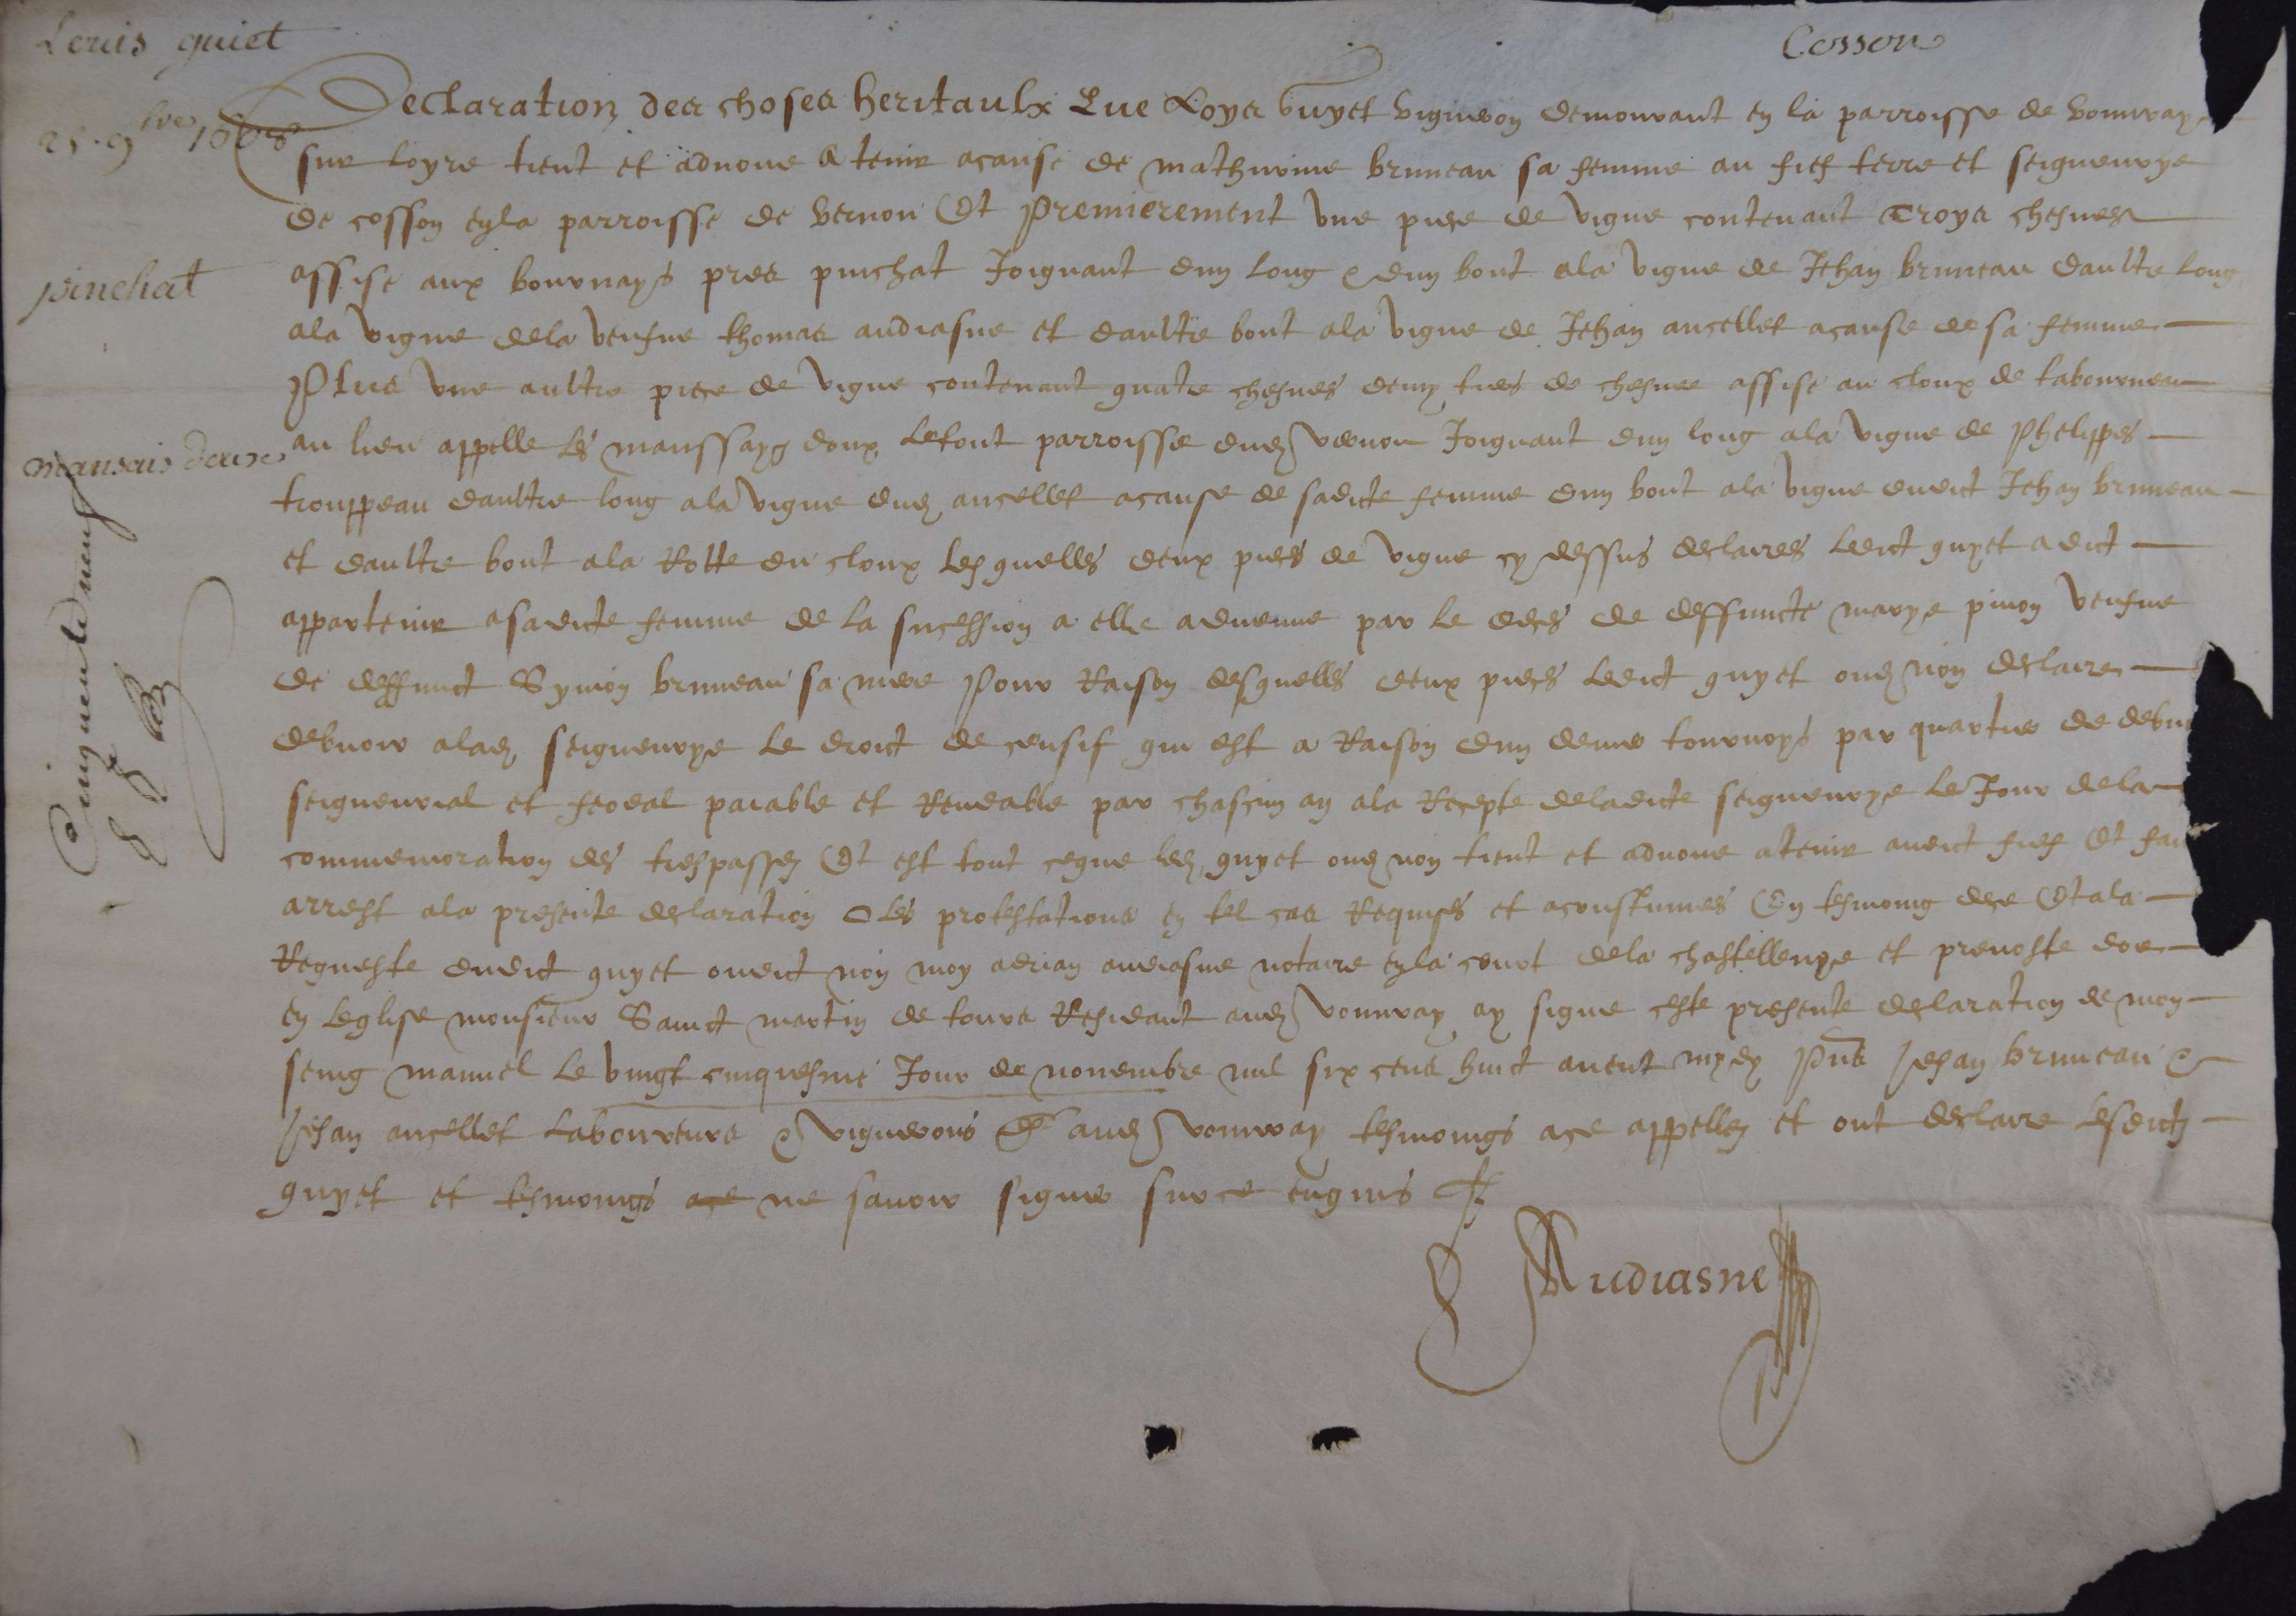 Louis guiet
Cosson
25. 9bre 1608
Declaration des choses heritaulx Que Loys Guyet vigneron demourant en la parroisse de Vouvray
sur loyre tient et advoue A tenir acause de mathurine bruneau sa femme au fief terre et seigneurye
de cosson en la parroisse de Vernou Et Premierement une piece de vigne contenant Troys chesnes
pinchat
assise aux bournays pres pinchat Joignant dun long & dun bout ala vigne de Jehan bruneau daultre long
ala vigne dela veufue thomas audiasne et daultre bout ala vigne de Jehan ancellet acause de sa femme
Plus une aultre piece de vigne contenant quatre chesnes demy tiers de chesnee assise au cloux de tabourneau
mansais doux
au lieu appelle les manssays doux Letout parroisse dud vernou Joignant dun long ala vigne de Phelippes
trouppeau daultre long ala vigne dud ancellet acause de sadicte femme dun bout ala vigne dudict Jehan bruneau
et daultre bout ala Rotte du cloux Lesquelles deux pieces de vigne cy dessus declairees Ledict guyet a dict
appartenir asadicte femme de la sucession a elle advenue par le deces de deffuncte marye pinon veufue
de deffunct Symon bruneau sa mere Pour Raison desquelles deux pieces Ledict guyet oud non declaire
debvoir alad seigneurye Le droict de censif qui est a Raison dun denier tournoys par quartier de debv
seigneurial et feodal paiable et Rendable par chascun an ala Recepte deladicte seigneurye Le Jour dela
commemoration des trespassez Et est tout ceque led guyet oud non tient et advoue atenir audict fief Et fai
arrest ala presente declaration O les protestations en tel cas Requises et acoustumes En tesmoing dece Et ala
Requeste dudict guyet oudict non moy adrian audiasne notaire en la court dela chastellenye et prevoste doe
en Leglise monsieur Sainct martin de tours Residant aud vouvray ay signe ceste presente declaration de mon
seing manuel Le vingt cinquiesme Jour de novembre mil six cens huict avent mydy Pns Jehan bruneau &
Jehan ancellet Laboureurs & vignerons aud vouvray tesmoings ace appellez et ont declaire Lesdictz
guyet et tesmoings ace ne savoir signer sur ce enquis
Audiasne
Cinquante neuf